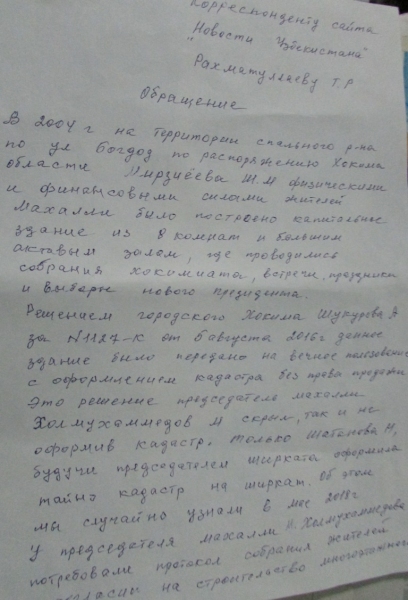 Корреспонденту сайта
"Новости Узбекистана"
Рахматуллаеву Т.Р
Обращение
В 2004 г на территории спального р-на
по ул Богдод по распоряжению Хокима
области Мирзиёева Ш.М физическими
и финансовыми силами жителей
Махалли было построено капитальное
здание из 8 комнат и большим
активым залом, где проводились
собрания хокимиата, встречи, праздники
и выборы нового президента.
Решением городского Хокима Шукурова А
за N1127-к от 6 августа 2016г данное
здание было передано на вечное пользование
с оформлением кадастра без права продажи
Это решение председатель махалли
Холмухаммедов И скрыл, так и не
оформив кадастр. Только Шабонова Н,
будучи председателем ширката оформила
тайно кадастр на ширкат. Об этом
мы случайно узнали в мае 2018г
У председателя махалли И. Холмухаммедова
потребовали протокол собрания жителей
на строительство многоэтажного